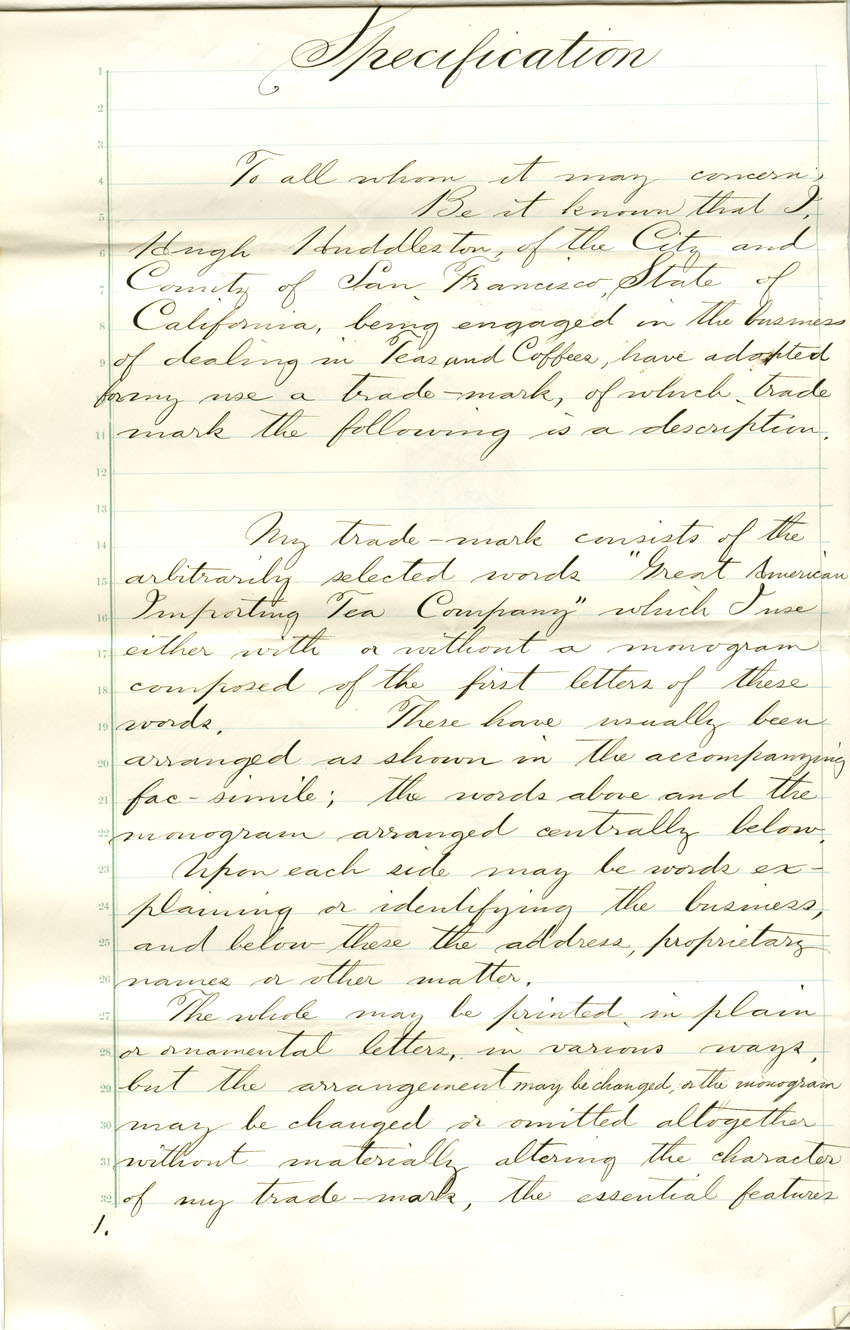 Specification
1
2
3
4 To all whom it may concern;
5 Be it known that I,
6 Hugh Huddleston, of the City and
7 County of San Francisco, State of
8 California, being engaged in the business
9 of dealing in Teas and Coffees, have adopted
10 for my use a trade-mark, of which trade
11 mark the following is a description.
12
13
14 My trade-mark consists of the
15 arbitrarily selected words "Great American
16 Importing Tea Company" which I use
17 either with or without a monogram
18 composed of the first letters of these
19 words. These have usually been
20 arranged as shown in the accompanying
21 fac-simile; the words above and the
22 monogram arranged centrally below.
23 Upon each side may be words ex-
24 plaining or identifying the business,
25 and below these the address, proprietary
26 names or other matter.
27 The whole may be printed in plain
28 or ornamental letters, in various ways,
29 but the arrangement may be changed, or the monogram
30 may be changed or omitted altogether
31 without materially altering the character
32 of my trade-mark, the essential features
1.